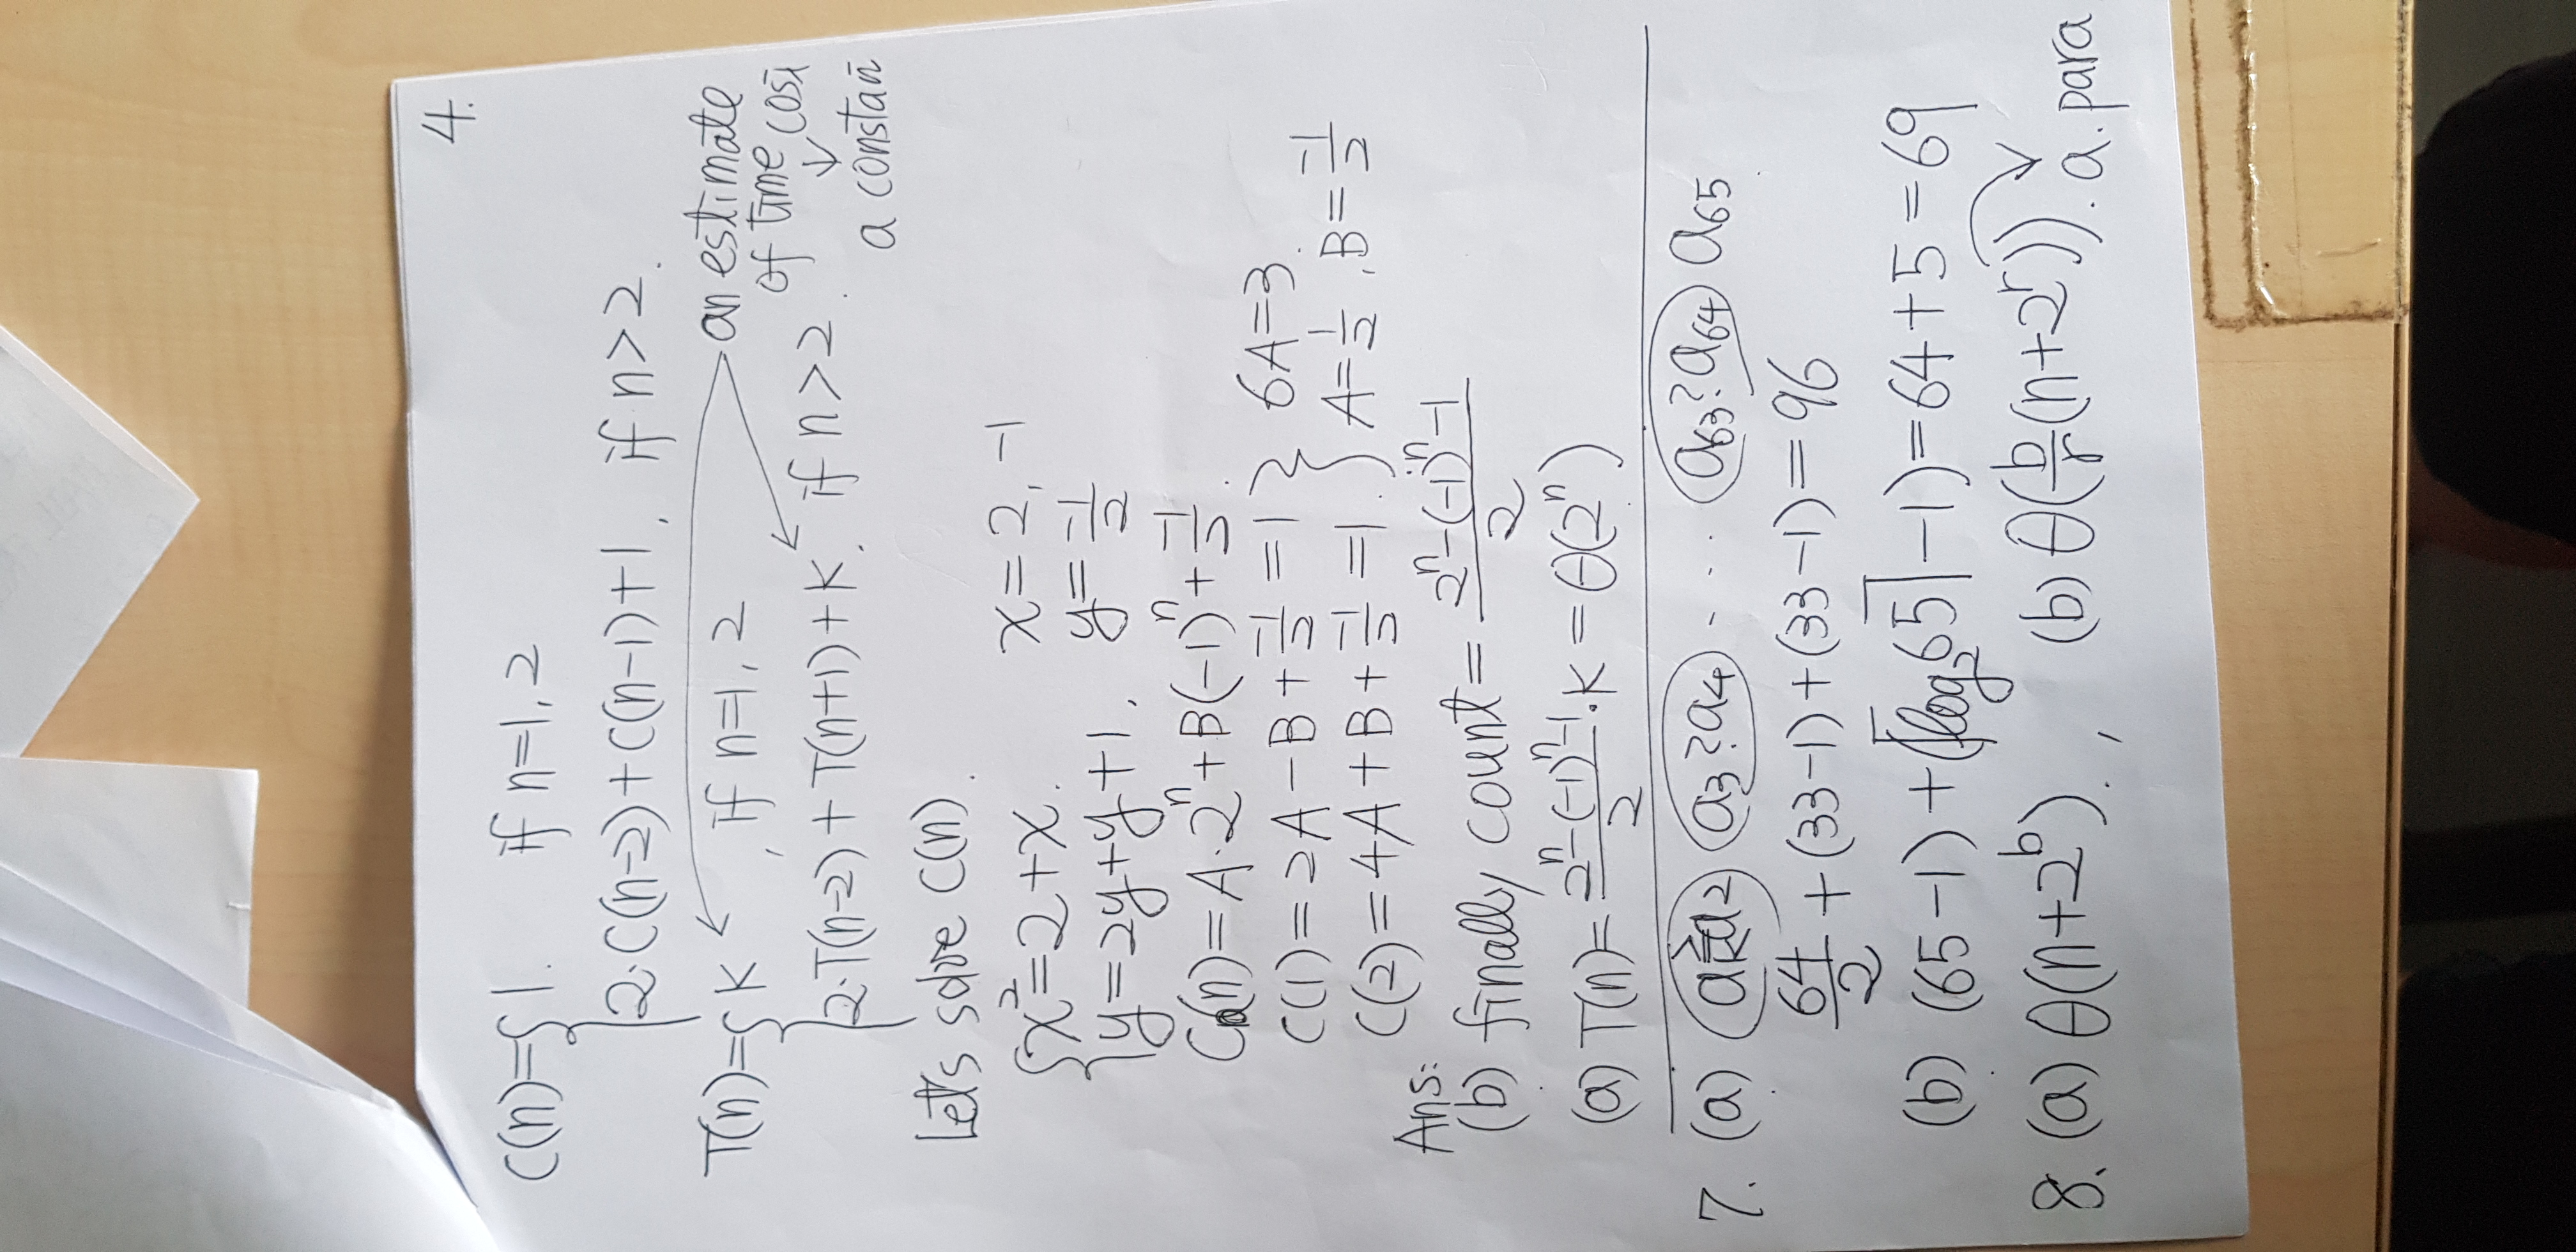 4.
C(n)={1. if n=1,2
2·C(n-2)+C(n-1)+1, if n>2.
T(n)={K, if n=1,2
an estimate
of time cost
2·T(n-2)+T(n+1)+K. if n>2.
a constan
Let's solve C(n).
{x²=2+x. x=2,-1
y=2y+y+1. y=-1/2
C(n)=A·2ⁿ+B(-1)ⁿ+-1/2.
C(1)=2A-B+-1/2=1} 6A=3.
C(2)=4A+B+-1/2=1.} A=1/2,B=-1/2
Ans:
(b) finally count=(2ⁿ-(-1)ⁿ-1)/2
(a) T(n)=(2ⁿ-(-1)ⁿ-1)/2·K=θ(2ⁿ)
7. (a) a₁≷a₂ a₃?a₄ ---- a₆₃?a₆₄ a₆₅
64/2+(33-1)+(33-1)=96
(b) (65-1)+(⌈log₂65⌉-1)=64+5=69
8. (a) θ(n+2ᵇ)., (b) θ(b/r(n+2ʳ)). a. para